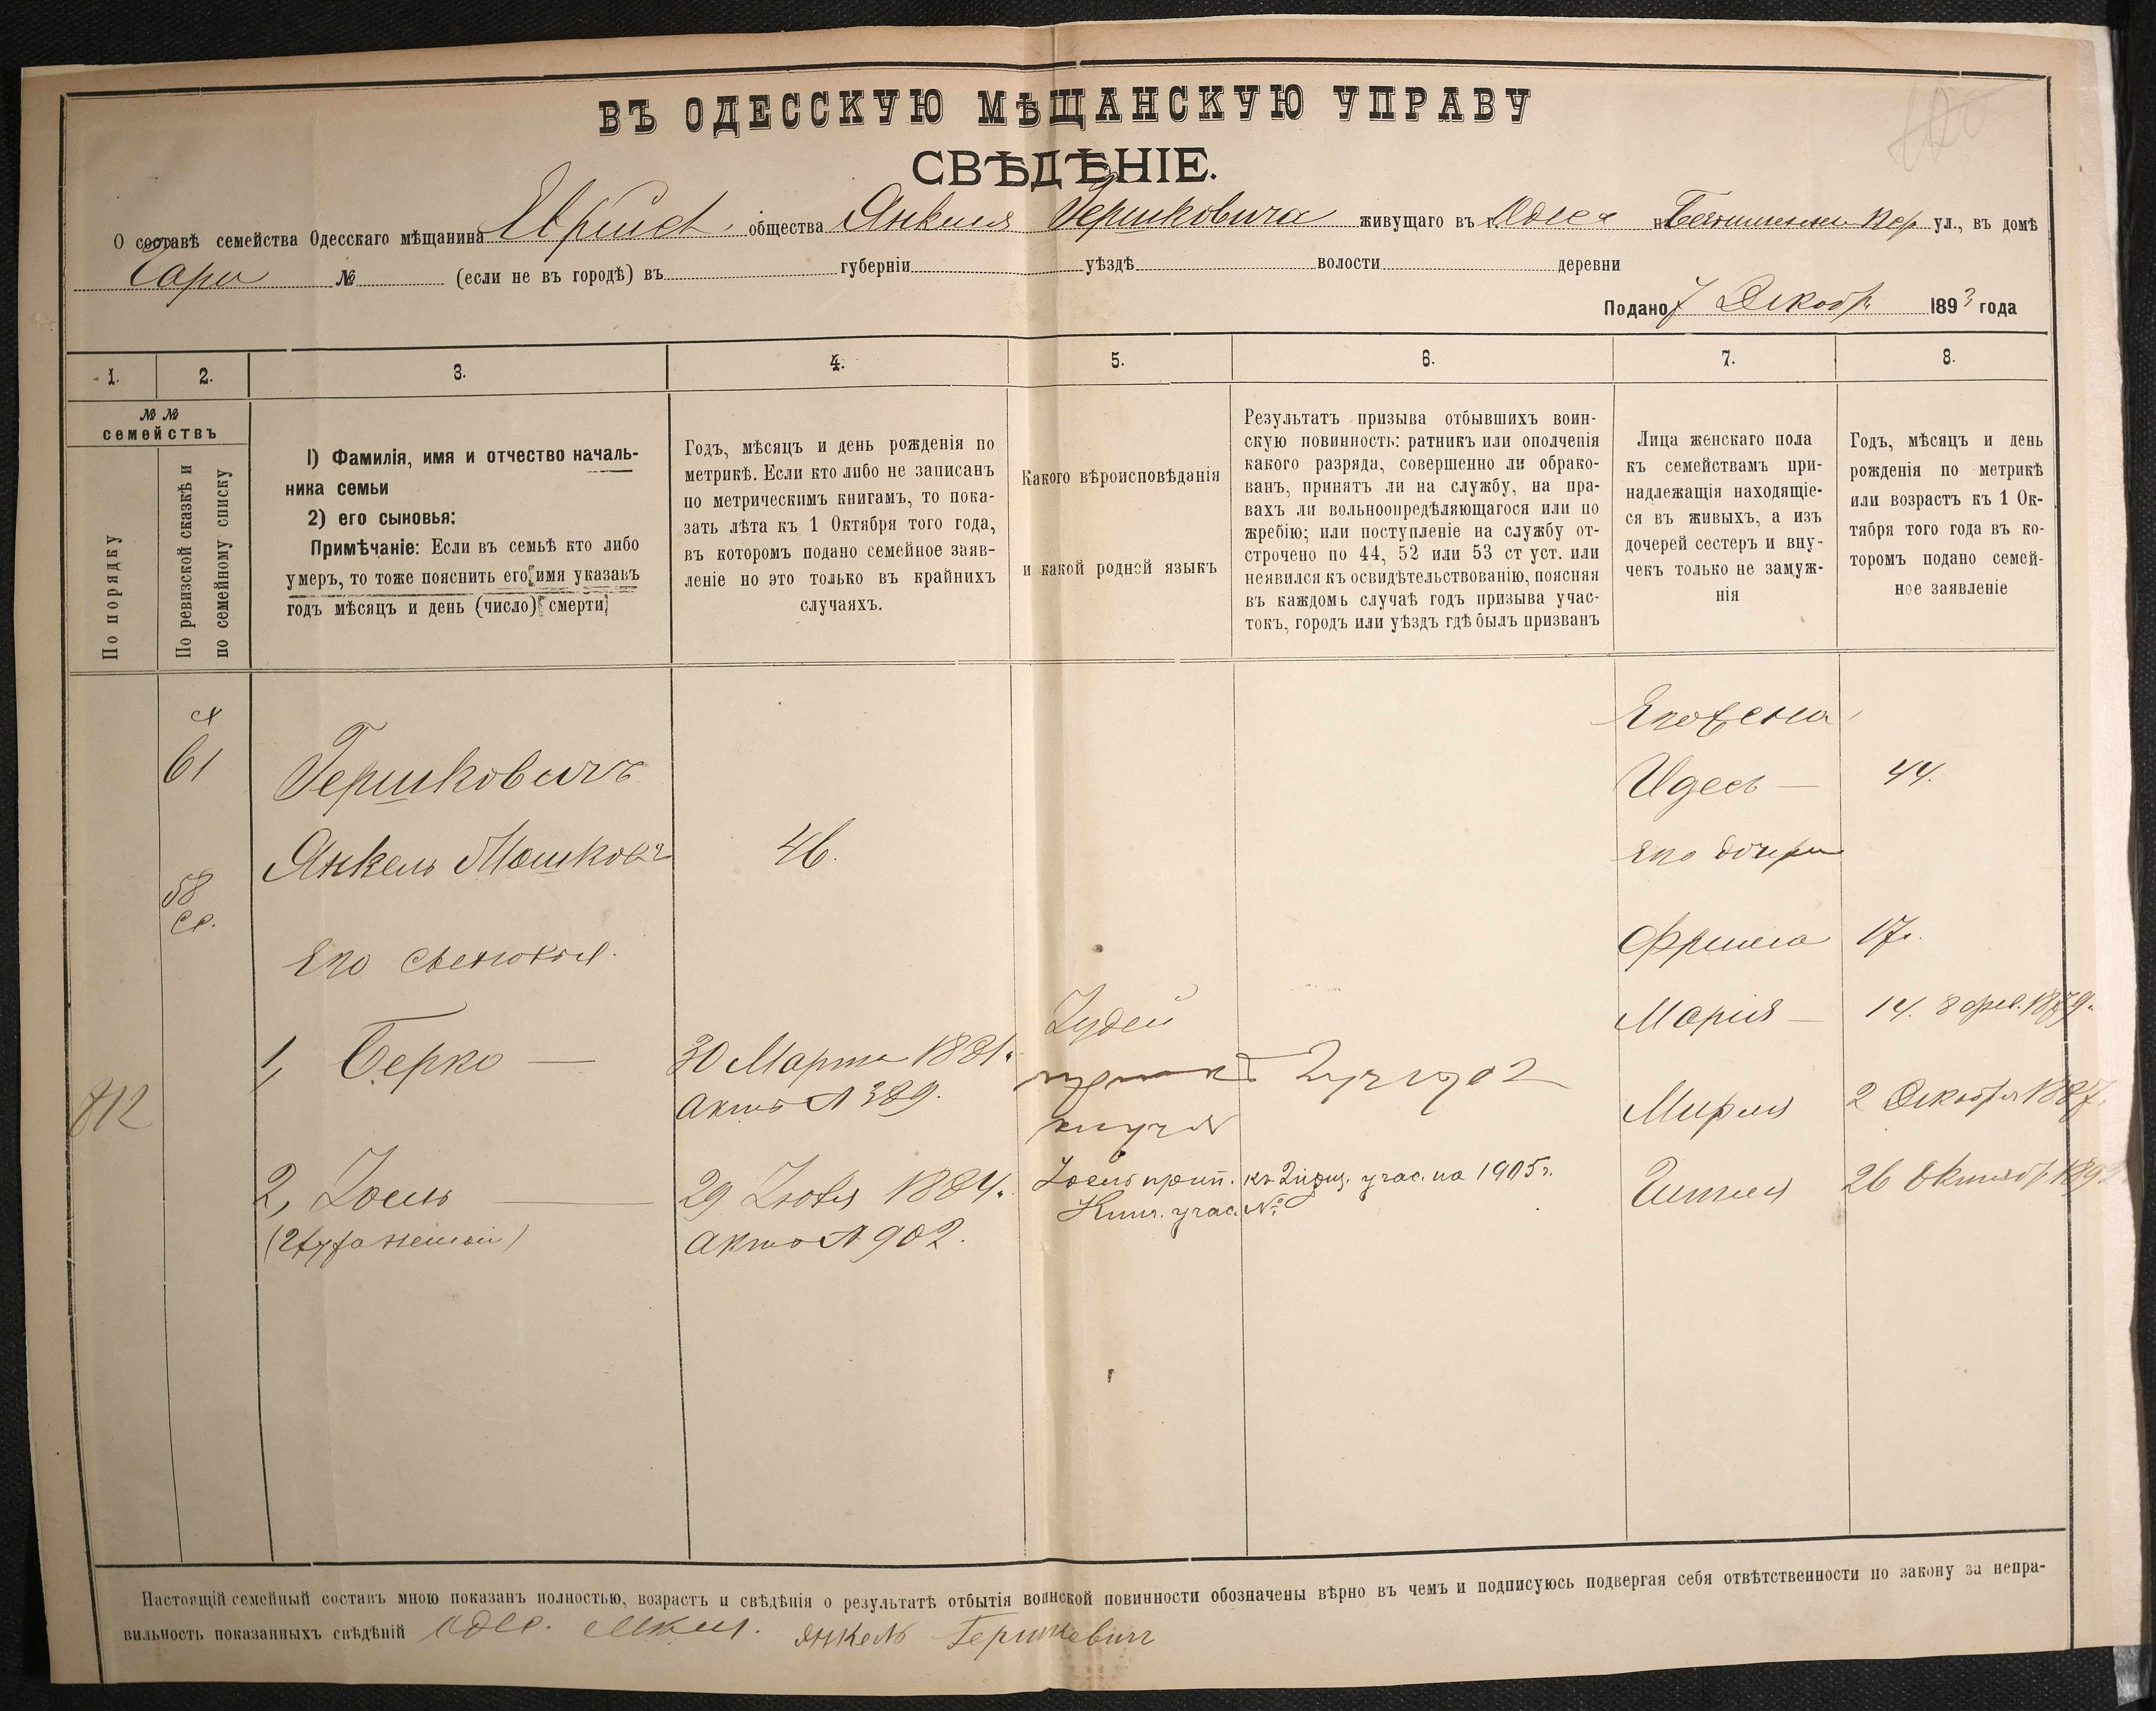 ВЪ ОДЕССКУЮ МѢЩАНСКУЮ УПРАВУ
СВѢДѢНІЕ.
О составѣ семейства Одесскаго мѣщанина общества Янкеля Гершковича живущаго въ г. Одессѣ на пер ул., въ домѣ
№ (если не въ городѣ) въ губерніи уѣздѣ волости деревни
Подано 7 Декабр. 1893 года
1.
2.
3.
4.
5.
6.
7.
8.
№ №
семействъ
По порядку
По ревизской сказкѣ и
по семейному списку
1) Фамилія, имя и отчество началь-
ника семьи
2) его сыновья:
Примѣчаніе: Если въ семьѣ кто либо
умеръ, то тоже пояснить его имя указавъ
годъ мѣсяцъ и день (число) смерти
Годъ, мѣсяцъ и день рожденія по
метрикѣ. Если кто либо не записанъ
по метрическимъ книгамъ, то пока-
зать лѣта къ 1 Октября того года,
въ которомъ подано семейное заяв-
леніе но это только въ крайнихъ
случаяхъ.
Какого вѣроисповѣданія
и какой родной языкъ
Результатъ призыва отбывшихъ воин-
скую повинность: ратникъ или ополченія
какого разряда, совершенно ли обрако-
ванъ, принятъ ли на службу, на пра-
вахъ ли вольноопредѣляющагося или по
жребію; или поступленіе на службу от-
строчено по 44, 52 или 53 ст уст. или
неявился къ освидѣтельствованію, поясняя
въ каждомъ случаѣ годъ призыва учас-
токъ, городъ или уѣздъ гдѣ былъ призванъ
Лица женскаго пола
къ семействамъ при-
надлежащія находящіе-
ся въ живыхъ, а изъ
дочерей сестеръ и вну-
чекъ только не замуж-
нія
Годъ, мѣсяцъ и день
рожденія по метрикѣ
или возрастъ къ 1 Ок-
тября того года въ ко-
торомъ подано семей-
ное заявленіе
61
Гершковичъ
Янкель Мошковъ
46.
58
Его сыновья.
1, Берко —
30 Марта 1881.
Актъ № 389.
Іудей
812
2, Іосль —
29 1884.
Актъ № 902.
Іосль прип. къ 2 приз. учас. на 1905 г.
учас. №
Его жена
Идесь — 44.
Его дочери
17.
Марія — 14. 8 фев. 1879.
Мирля 2 Декабря 1887.
26 Октябр 189
Настоящій семейный составъ мною показанъ полностью, возрастъ и свѣдѣнія о результатѣ отбытія воинской повинности обозначены вѣрно въ чемъ и подписуюсь подвергая себя отвѣтственности по закону за непра-
вильность показанныхъ свѣдѣній Одес. Янкель Гершкович